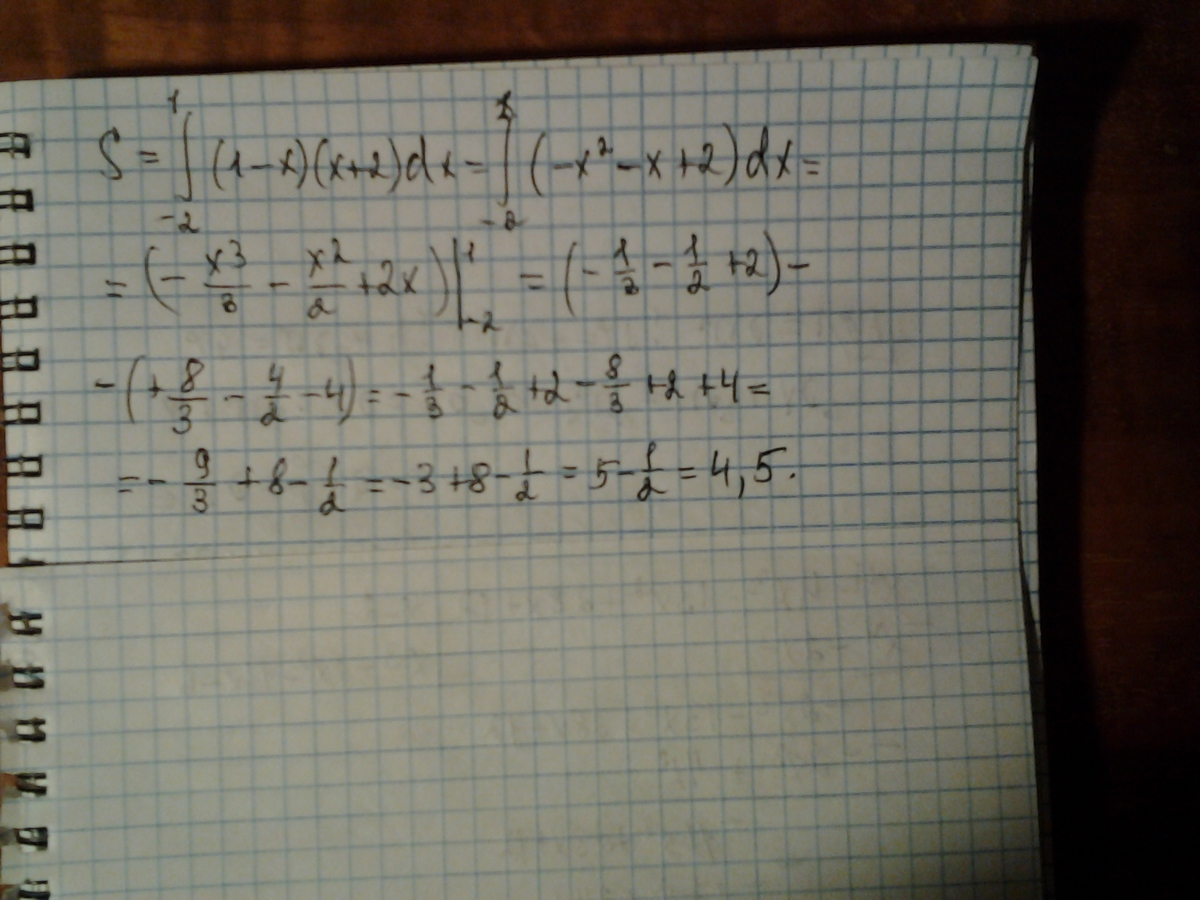 S = ∫₋₂¹ (1-x)(x+2)dx = ∫₋₂¹ (-x²-x+2)dx =
= (-x³/3 - x²/2 + 2x)|₋₂¹ = (-1/3 - 1/2 + 2) -
- (+8/3 - 4/2 - 4) = -1/3 - 1/2 + 2 - 8/3 + 2 + 4 =
= -9/3 + 8 - 1/2 = -3 + 8 - 1/2 = 5 - 1/2 = 4,5.